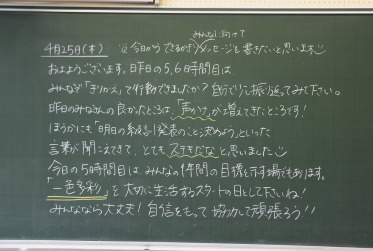 みんなに向けて
4月25日(木) 今日からできるかぎりメッセージを書きたいと思います
おはようございます。昨日の5,6時間目は
みんなで「きりかえ」て行動できましたか？自分でも振り返ってみて下さい。
昨日のみなさんの良かったところは、「声かけ」が増えてきたところです！
ほうかにも「明日の系統別発表のこと決めよう」といった
言葉が聞こえてきて、とてもステキだなと思いました
今日の5時間目は、みんなの1年間の目標を示す場でもあります。
「一色多彩」を大切に生活するスタートの日として下さいね！
みんななら大丈夫！自信をもって協力して頑張ろう!!